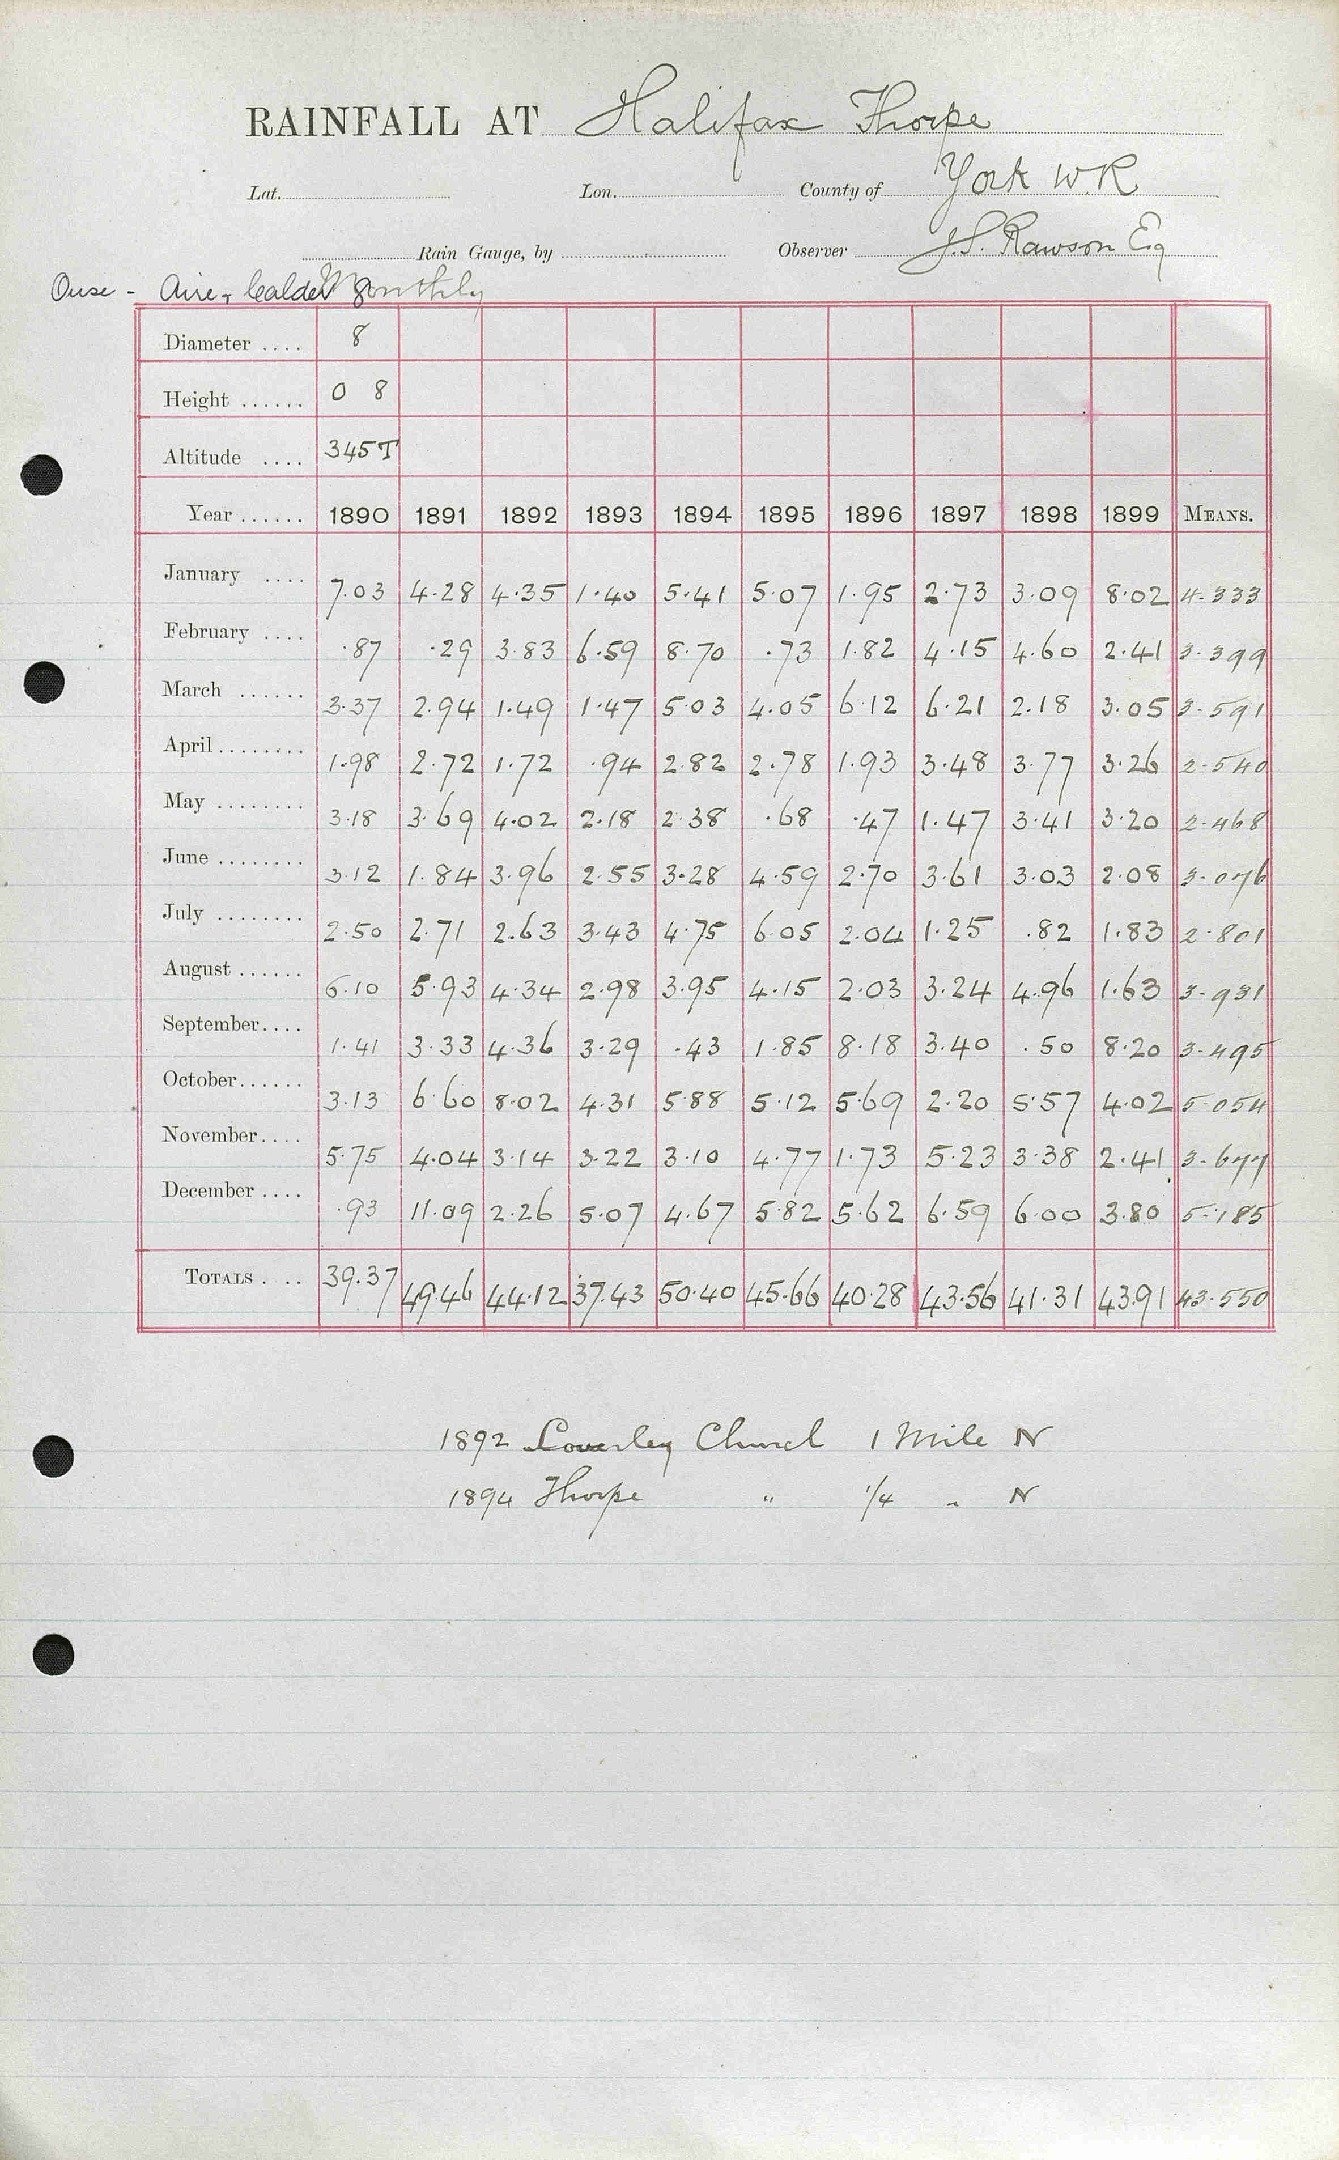 RAINFALL AT Halifax Thorpe
Lat. Lon. County of York W.R
Rain Gauge, by Observer J.S. Rawson Esq
Ouse - Aire & Calder 8 Monthly
Diameter .... 8
Height ...... 0 8
Altitude .... 345T
Year ...... 1890 1891 1892 1893 1894 1895 1896 1897 1898 1899 MEANS.
January .... 7.03 4.28 4.35 1.40 5.41 5.07 1.95 2.73 3.09 8.02 4.333
February .... .87 .29 3.83 6.59 8.70 .73 1.82 4.15 4.60 2.41 3.399
March ...... 3.37 2.94 1.49 1.47 5.03 4.05 6.12 6.21 2.18 3.05 3.591
April ........ 1.98 2.72 1.72 .94 2.82 2.78 1.93 3.48 3.77 3.26 2.540
May ........ 3.18 3.69 4.02 2.18 2.38 .68 .47 1.47 3.41 3.20 2.468
June ........ 3.12 1.84 3.96 2.55 3.28 4.59 2.70 3.61 3.03 2.08 3.076
July ........ 2.50 2.71 2.63 3.43 4.75 6.05 2.04 1.25 .82 1.83 2.801
August ...... 6.10 5.93 4.34 2.98 3.95 4.15 2.03 3.24 4.96 1.63 3.931
September.... 1.41 3.33 4.36 3.29 .43 1.85 8.18 3.40 .50 8.20 3.495
October...... 3.13 6.60 8.02 4.31 5.88 5.12 5.69 2.20 5.57 4.02 5.054
November.... 5.75 4.04 3.14 3.22 3.10 4.77 1.73 5.23 3.38 2.41 3.677
December .... .93 11.09 2.26 5.07 4.67 5.82 5.62 6.59 6.00 3.80 5.185
TOTALS .... 39.37 49.46 44.12 37.43 50.40 45.66 40.28 43.56 41.31 43.91 43.550
1892 Church 1 Mile N
1894 Thorpe " 1/4 " N